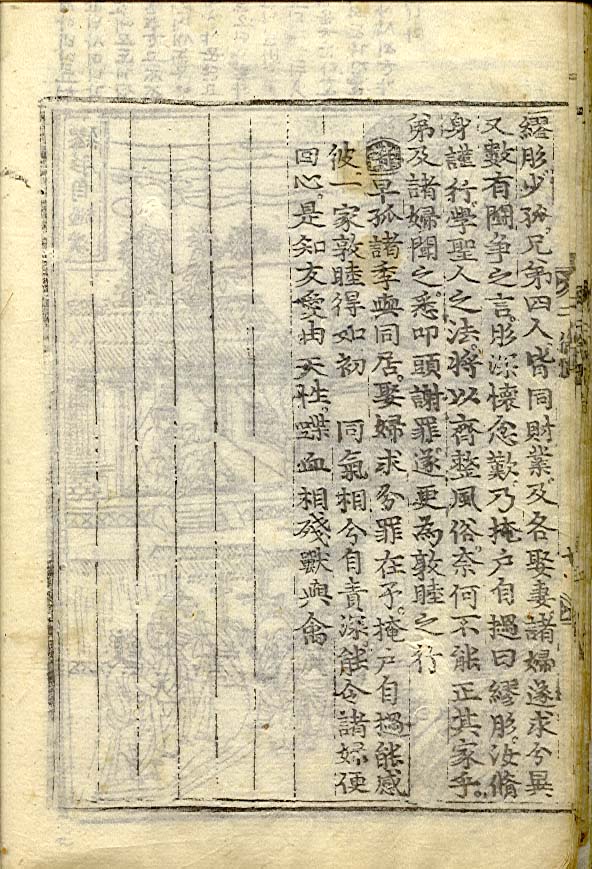 繆肜少孤兄弟四人皆同財業及各娶妻諸婦遂求分異
又數有鬪爭之言肜深懷忿歎乃掩戶自撾曰繆肜汝脩
身謹行學聖人之法將以齊整風俗奈何不能正其家乎
弟及諸婦聞之悉叩頭謝罪遂更為敦睦之行
詩 早孤諸季與同居娶婦求分罪在予掩戶自撾能感
彼一家敦睦得如初 同氣相分自責深能令諸婦便
回心是知友愛由天性喋血相殘獸與禽